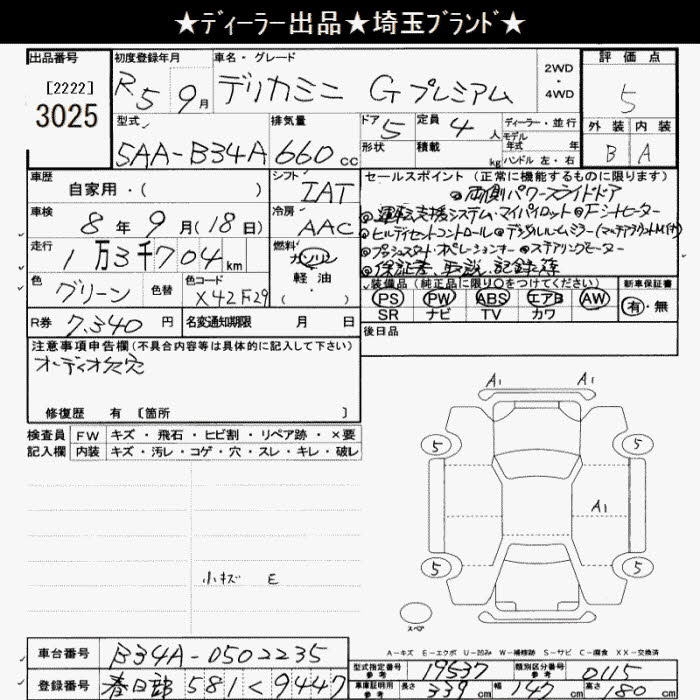 ★ディーラー出品★埼玉ブランド★
出品番号 初度登録年月 車名・グレード 2WD・4WD 評価点
[2222] R5 9月 デリカミニ Gプレミアム 5
3025
型式 排気量 ドア 定員 ディーラー・並行 外装 内装
5AA-B34A 660cc 5 4人 モデル年式 年 B A
形状 積載 kg ハンドル 左・右
車歴 自家用・( ) シフト IAT セールスポイント(正常に機能するものに限ります)
◎両側パワースライドドア
車検 8年9月(18日) 冷房 AAC ◎運転支援システム・マイパイロット ◎Fシートヒーター
◎ヒルディセントコントロール ◎デジタルルームミラー(マルチアラウンドM付)
走行 1万3千704km 燃料 ガソリン・軽油( ) ◎プッシュスタートオペレーションキー ◎ステアリングヒーター
◎保証書、取説、記録簿
色 グリーン 色替 色コード X42F29 装備品(純正品に限り○をつけてください) 新車保証書
PS PW ABS エアB AW 有・無
SR ナビ TV カワ
R券 7,340円 名変通知期限 月 日 後日品
注意事項申告欄(不具合内容等は具体的に記入して下さい)
オーディオ欠穴
修復歴 有 〔箇所 〕
検査員記入欄 FW キズ・飛石・ヒビ割・リペア跡・×要
内装 キズ・汚レ・コゲ・穴・スレ・キレ・破レ
A1 A1
5 5
A1
5 5
小キズ E
スペア
A-キズ E-エクボ U-凹み W-補修跡 S-サビ C-腐食 XX-交換済
車台番号 B34A-0502235 型式指定番号 参考 19537 類別区分番号 参考 0115
登録番号 春日部 581 く 9447 車庫証明用 参考 長さ 339cm 幅 147cm 高さ 180cm